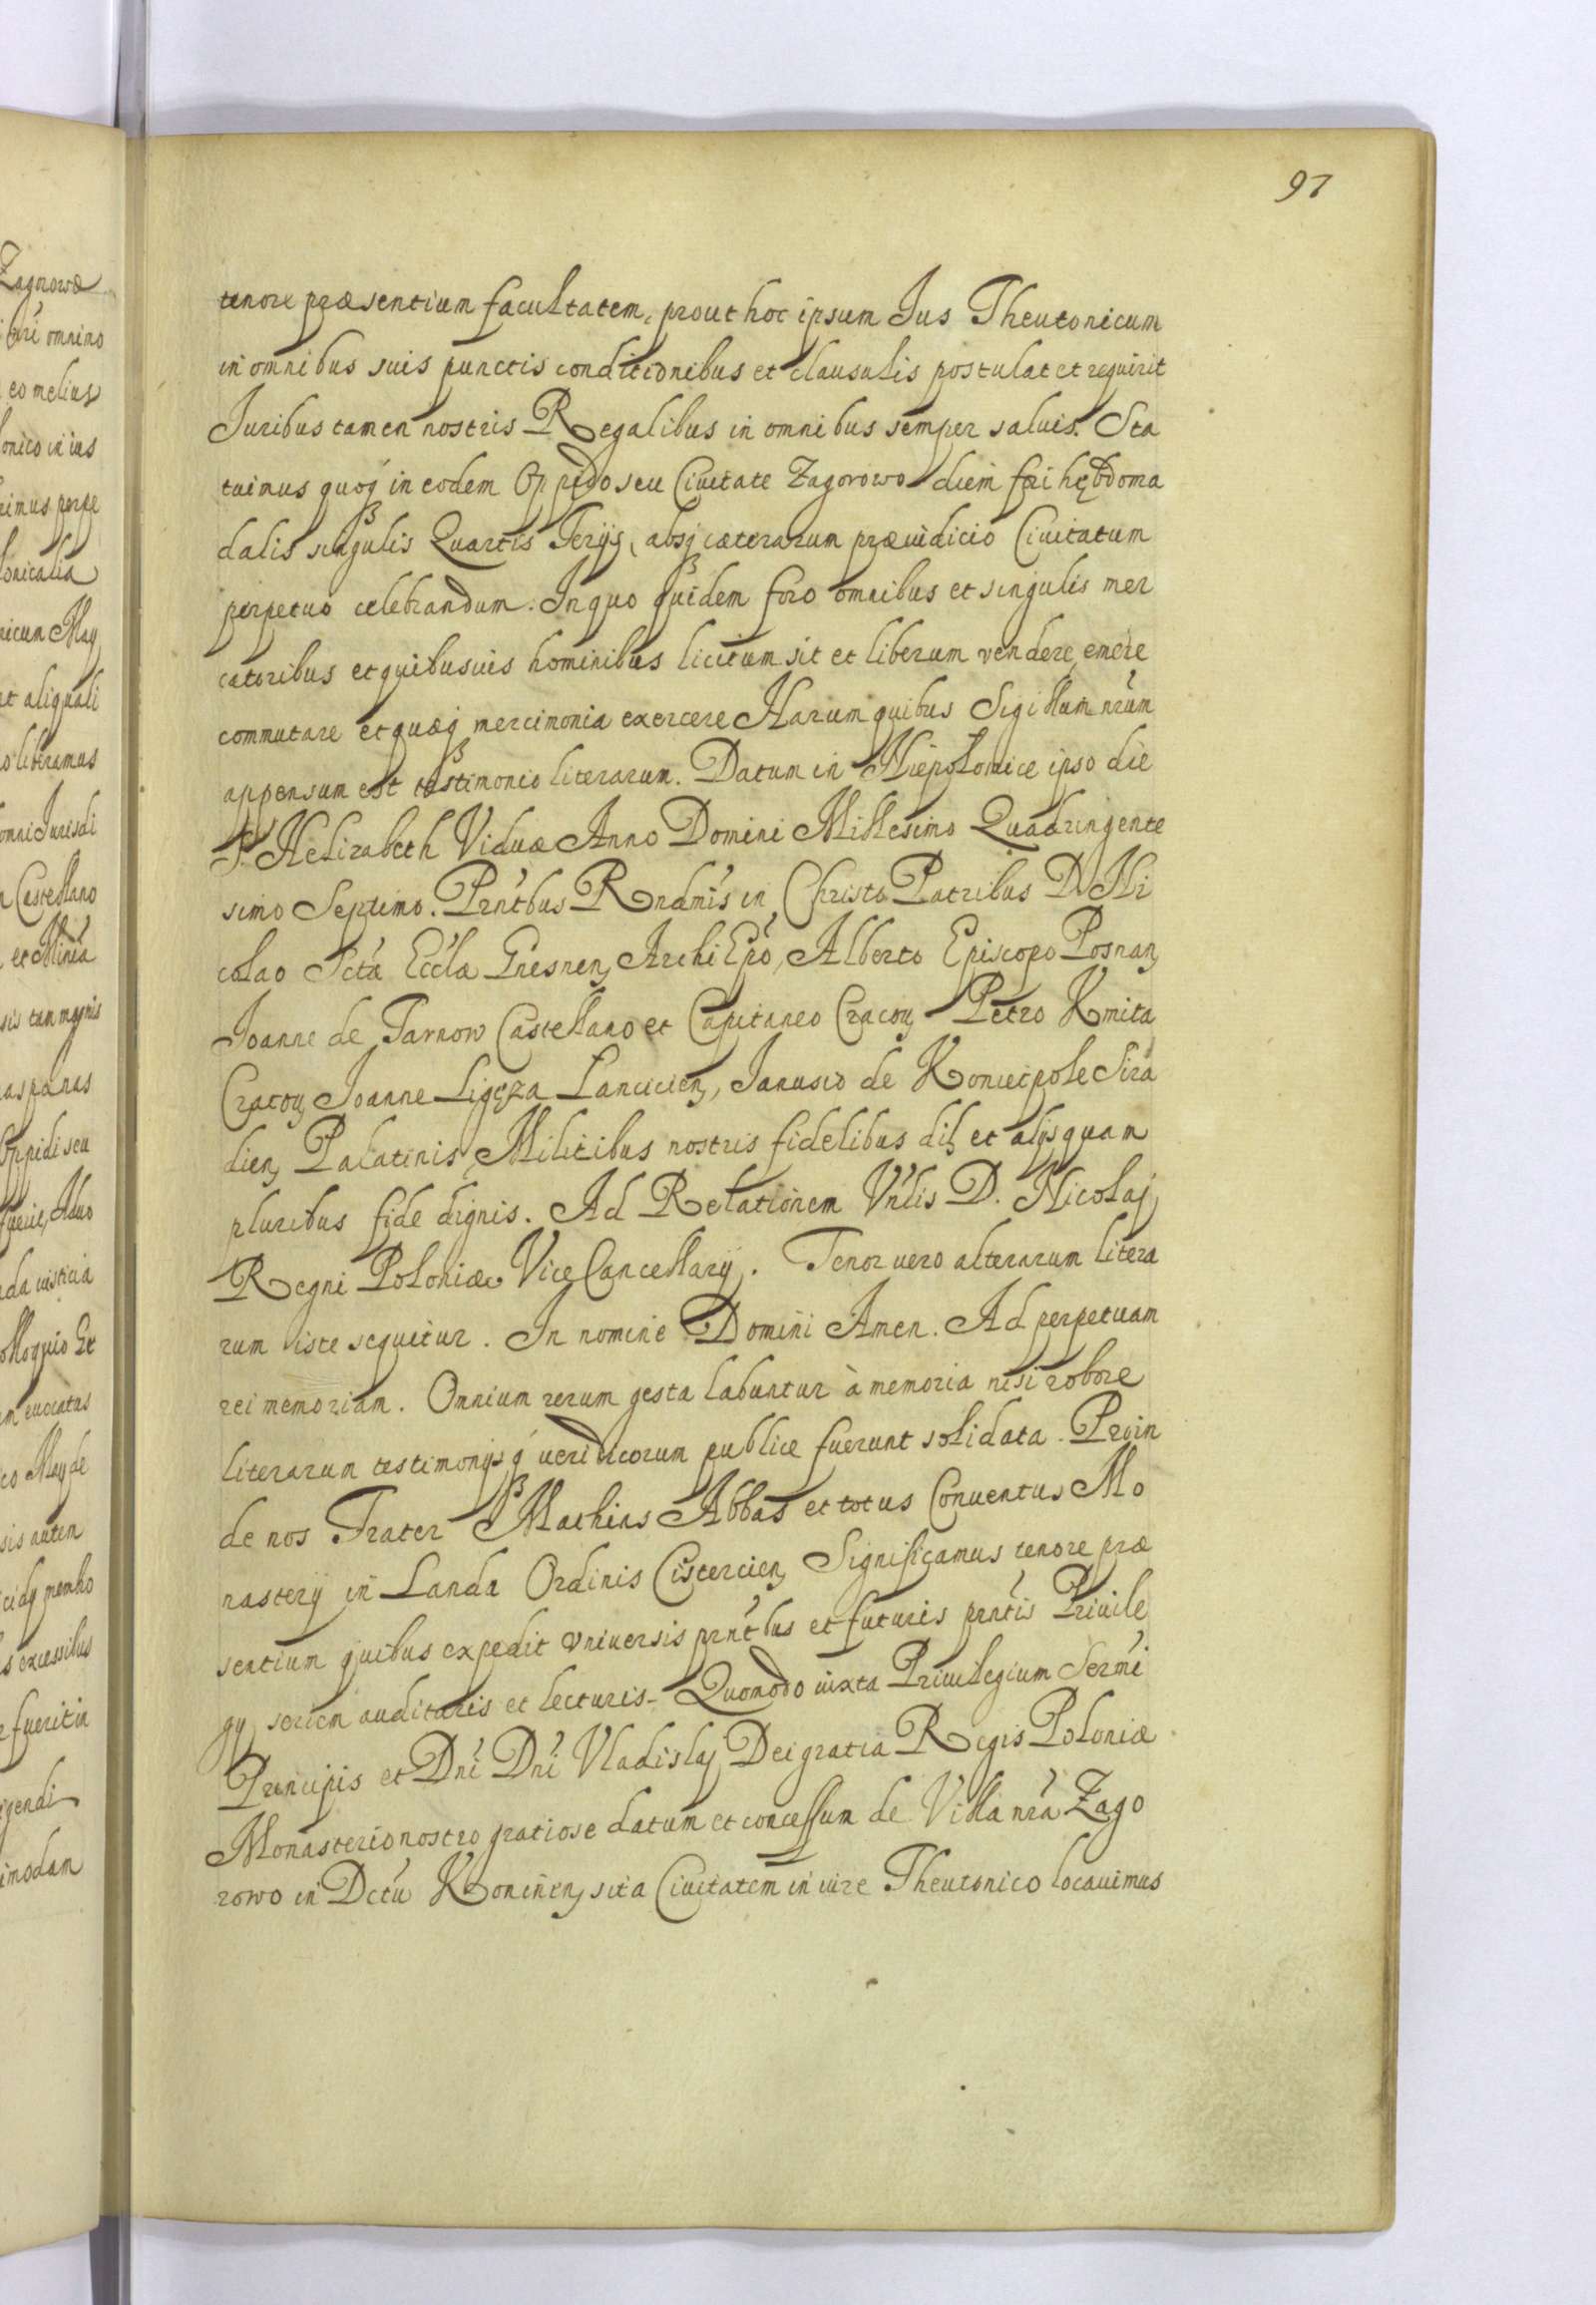 97
tenore præsentium facultatem, prout hoc ipsum Jus Theutonicum
in omnibus suis punctis conditionibus et clausulis postulat et requirit
Juribus tamen nostris Regalibus in omnibus semper saluis. Sta
tuimus quoq́ in eodem Oppido seu Ciuitate Zagorowo diem fori hębdoma
dalis singulis Quartis Ferijs, absq́ cæterarum præiudicio Ciuitatum
perpetuo celebrandum. In quo quidem foro omnibus et singulis mer
catoribus et quibusuis hominibus licitum sit et liberum vendere, emere
commutare et quæq́ mercimonia exercere Harum quibus Sigillum nr̃um
appensum est testimonio literarum. Datum in Niepolomice ipso die
S. Helizabeth Viduæ Anno Domini Millesimo Quadringente
simo Septimo. Prńtbus Rndmís in Christo Patribus D. Ni
colao Sctá Ecclǽ Gnesnen, Archi Epó, Alberto Episcopo Posnan,
Joanne de Tarnow Castellano et Capitaneo Cracou, Petro Kmita
Cracou, Joanne Ligęza Lancicien, Janusio de Koniecpole Sira
dien, Palatinis, Militibus nostris fidelibus dil, et alijs quam
pluribus fide dignis. Ad Relationem Vńlis D. Nicolaj
Regni Poloniæ Vice Cancellarij. Tenor uero alterarum litera
rum iste sequitur. In nomine Domini Amen. Ad perpetuam
rei memoriam. Omnium rerum gesta labuntur à memoria nisi robore
literarum testimonijsq́ ueridicorum publice fuerunt solidata. Proin
de nos Frater Mathias Abbas et totus Conuentus Mo
nasterij in Landa Ordinis Cistercien, Significamus tenore præ
sentium quibus expedit vniuersis prńtbus et futuris prńtis Priuile
gy seriem audituris et lecturis. Quomodo iuxta Priuilegium Sermí
Principis et Dńi Dńi Vladislaj Dei gratia Regis Poloniæ
Monasterio nostro gratiose datum et concessum de Villa nrá Zago
rowo in Dctú Koninen, sita Ciuitatem in iure Theutonico locauimus